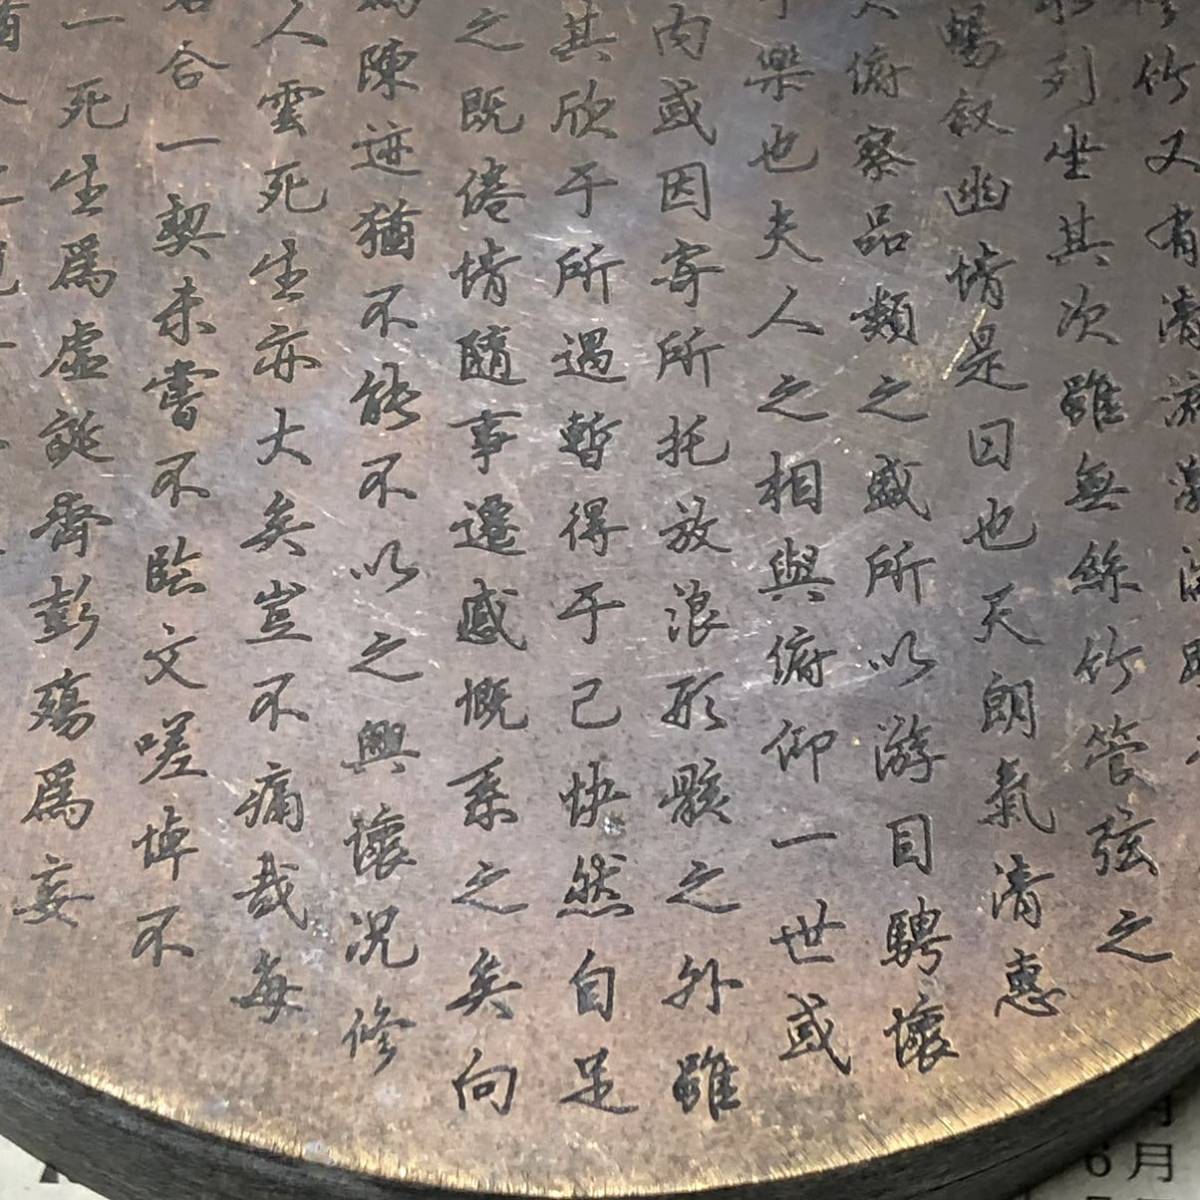 脩竹又有清流激
列坐其次雖無絲竹管弦之
暢叙幽情是日也天朗氣清惠
俯察品類之盛所以游目騁懷
樂也夫人之相與俯仰一世或
内或因寄所托放浪形骸之外雖
其欣于所遇暫得于己快然自足
之既倦情隨事遷感慨系之矣向
爲陳迹猶不能不以之興懷况修
人雲死生亦大矣豈不痛哉每
合一契未嘗不臨文嗟悼不
一死生爲虛誕齊彭殤爲妄
6月